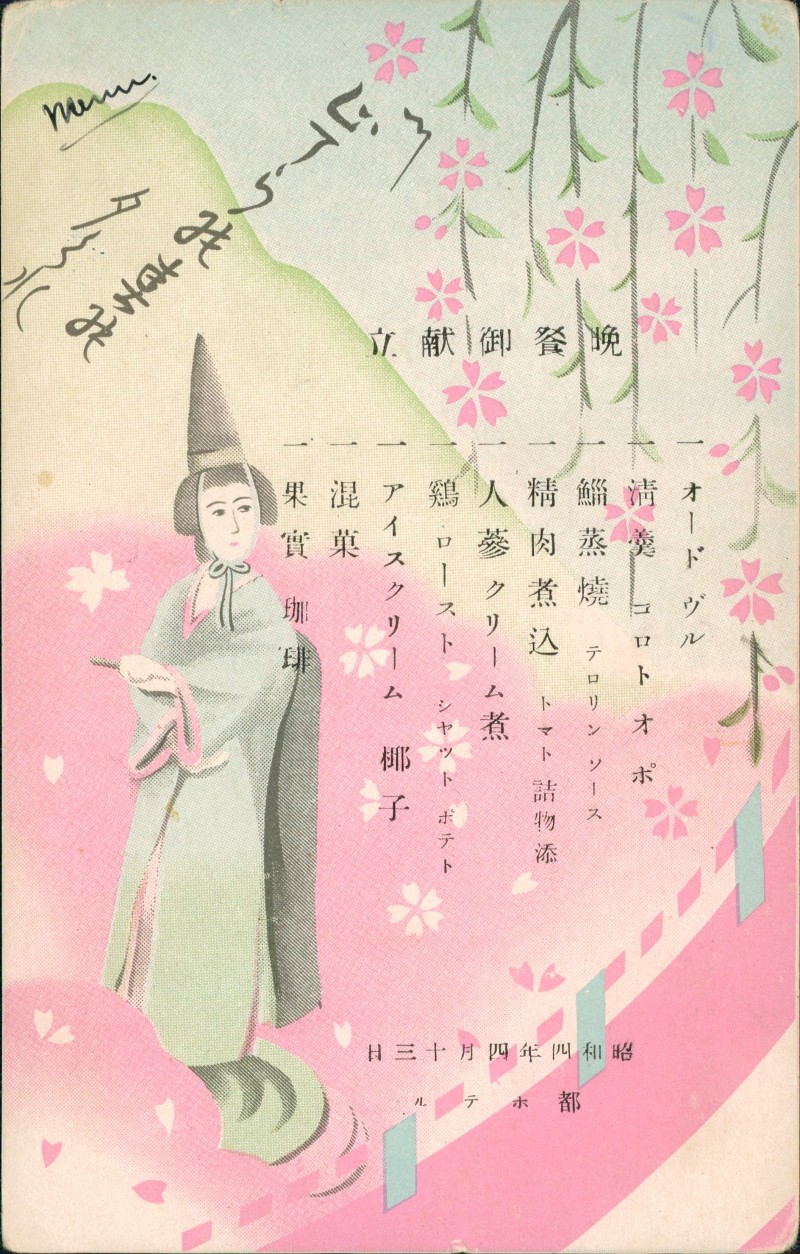 Menu.
晩餐御献立
一 オードヴル
一 淸羹 コロトオポ
一 鯔蒸燒 テロリンソース
一 精肉煮込 トマト詰物添
一 人蔘クリーム煮
一 鷄 ロースト シヤツトポテト
一 アイスクリーム 椰子
一 混菓
一 果實 珈琲
昭和四年四月十三日
都ホテル